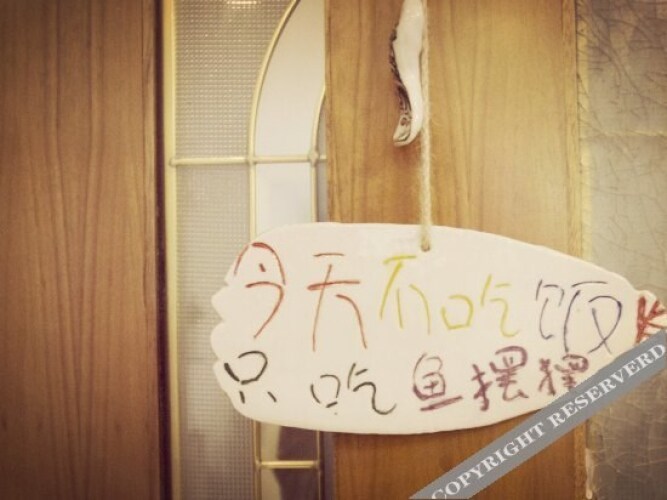 今天不吃饭
只吃鱼摆摆
COPYRIGHT RESERVERD